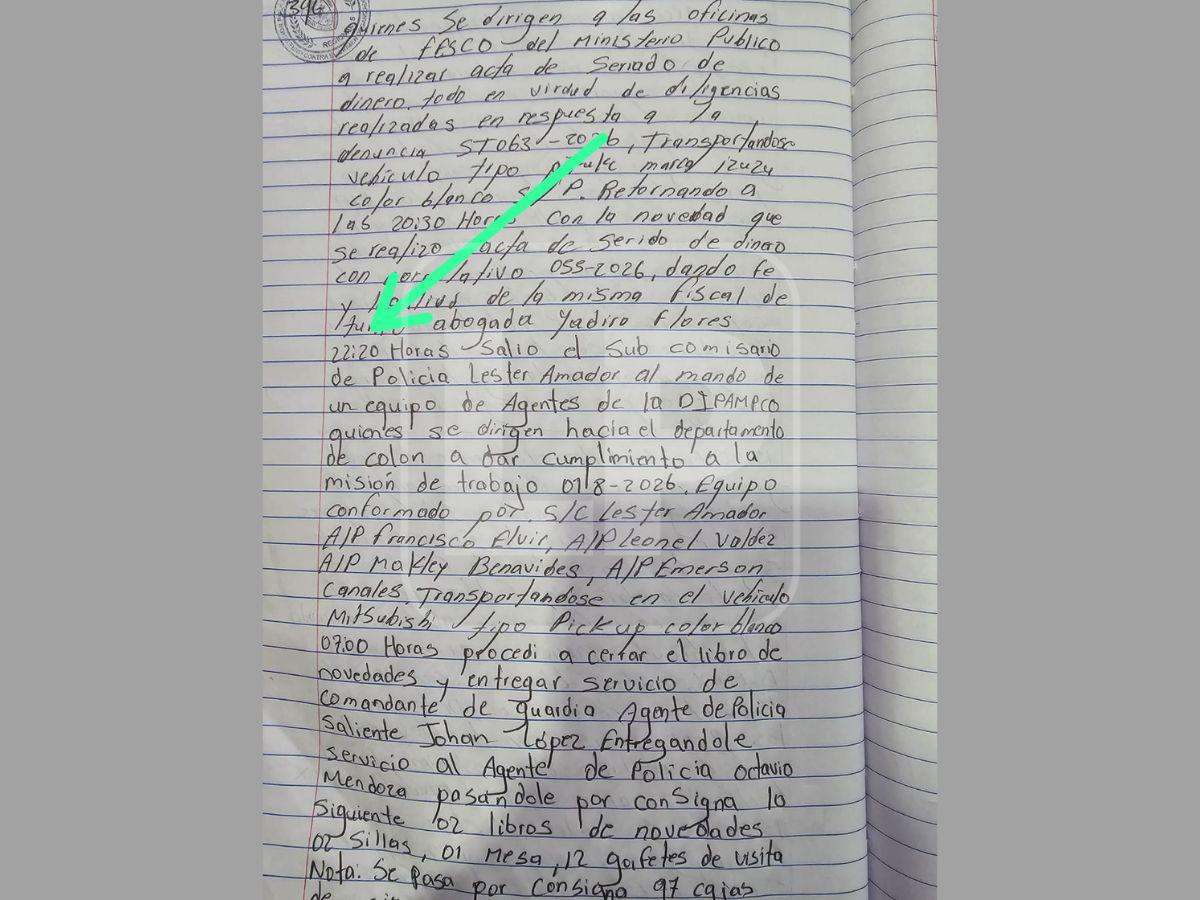 396
quirnes se dirigen a las oficinas
de FESCO del Ministerio Publico
a realizar acta de Seriado de
dinero. todo en virdud de diligencias
realizadas en respuesta a la
denuncia ST063-2026, Transportandose
vehiculo tipo marca izuzu
color blanco S/P. Retornando a
las 20:30 Horas con la novedad que
se realizo acta de Serido de dinero
con correlativo 055-2026, dando fe
y de la misma fiscal de
turno abogada Yadiro Flores
22:20 Horas Salio el Sub comisario
de Policia Lester Amador al mando de
un equipo de Agentes de la DIPAMPCO
quienes se dirigen hacia el departamento
de colon a dar cumplimiento a la
misión de trabajo 018-2026. Equipo
conformado por S/C Lester Amador
A/P Francisco Elvir, A/P leonel Valdez
A/P Makley Benavides, A/P Emerson
Canales. Transportandose en el vehiculo
Mitsubishi tipo Pick up color blanco
07:00 Horas procedi a cerrar el libro de
novedades y entregar servicio de
comandante de guardia Agente de Policia
Saliente Johan López Entregandole
servicio al Agente de Policia octavio
Mendoza pasandole por consigna lo
Siguiente 02 libros de novedades
02 Sillas, 01 Mesa, 12 gafetes de visita
Nota: Se Pasa por Consigna 97 cajas
de